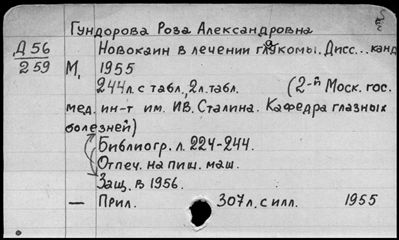 Гундорова Роза Александровна
Д 56 Новокаин в лечении глаукомы. Дисс... канд
259 М, 1955
244л. с табл., 2л. табл. (2-й Моск. гос.
мед. ин-т им. ИВ. Сталина. Кафедра глазных
болезней)
Библиогр. л. 224-244.
Отпеч. на пиш. маш.
Защ. в 1956.
— Прил. 307л. с илл. 1955